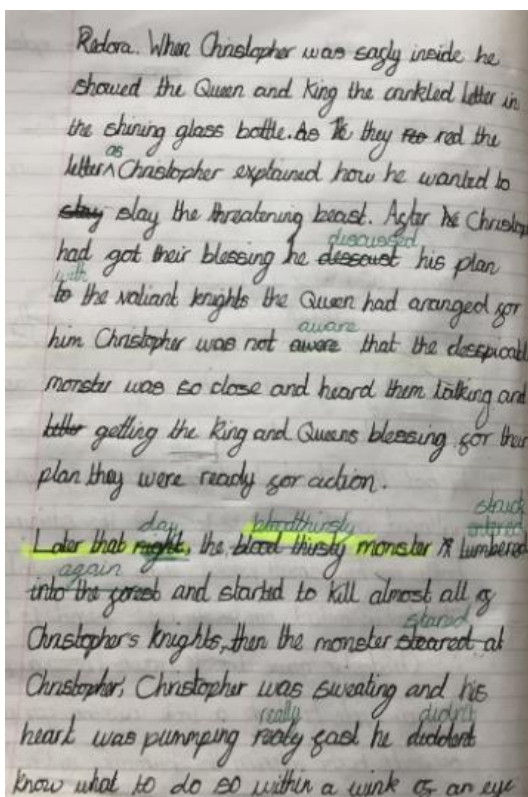 Redora. When Christopher was safly inside he
showed the Queen and King the crinkled letter in
the shining glass bottle. As they red the
letter as Christopher explained how he wanted to
stay slay the threatening beast. After he Christop
had got their blessing he dessoust discussed his plan
to with the valiant knights the Queen had aranged for
him Christopher was not awere aware that the desspicabl
monster was so close and heard them talking and
getting the King and Queens blessing for their
plan they were ready for action.
Later that night, day the blood thirsty bloodthirsty monster lumbered struck
into the forest again and started to kill almost all of
Christopher's knights, then the monster steared stared at
Christopher, Christopher was sweating and his
heart was pummping realy really fast he diddent didn't
know what to do so within a wink of an eye